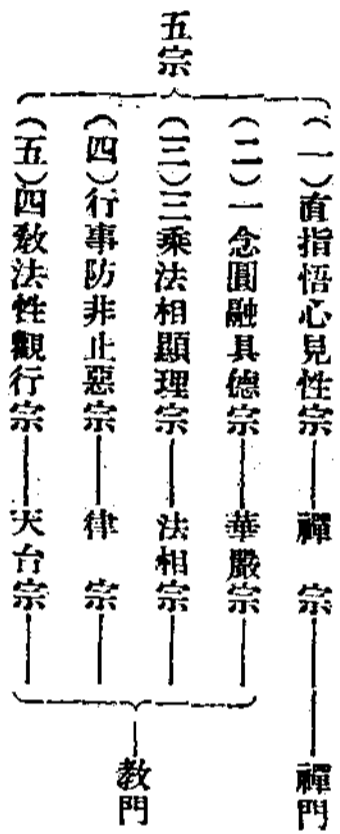 五宗
（一）直指悟心見性宗——禪　宗——禪門
（二）一念圓融具德宗——華嚴宗
（三）三乘法相顯理宗——法相宗
（四）行事防非止惡宗——律　宗
（五）四敎法性觀行宗——天台宗
敎門